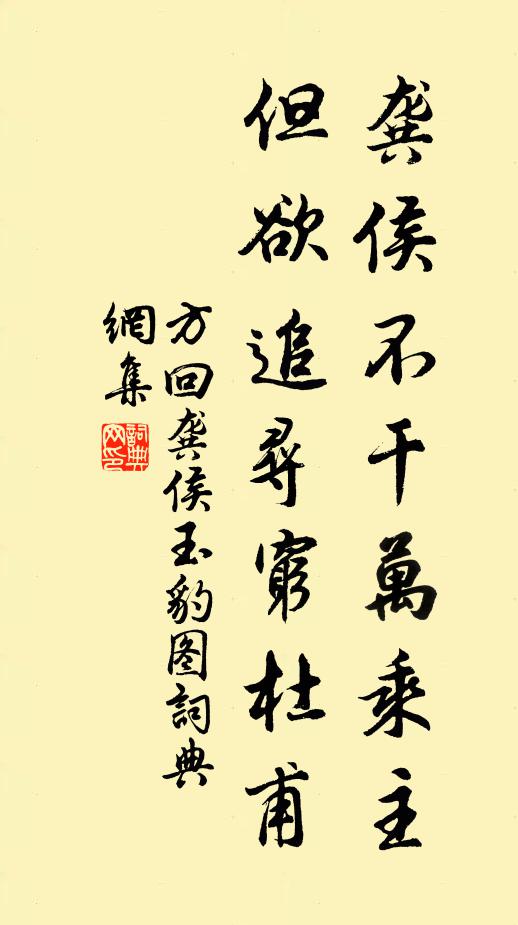 龔侯不干萬乘主
但欲追尋窮杜甫
方回龔侯玉豹图詞典
網集
詞典
网印